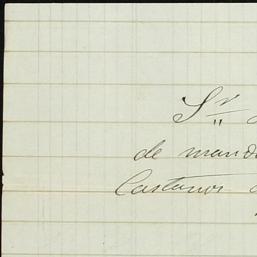 Sr
de mand
Castaños